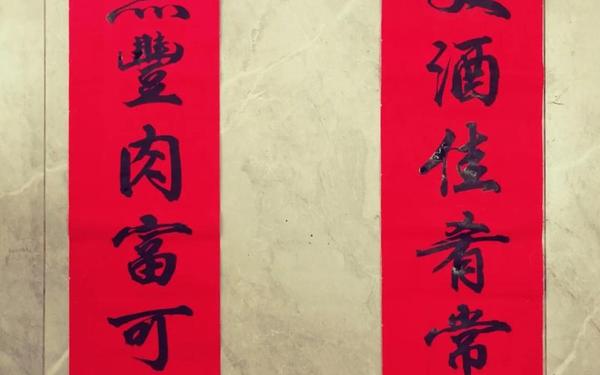 酒佳肴常
豐肉富可